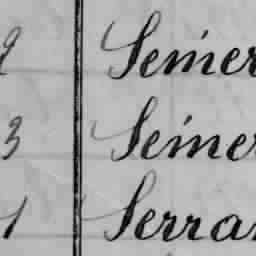 2 Semer
3 Semer
1 Serra